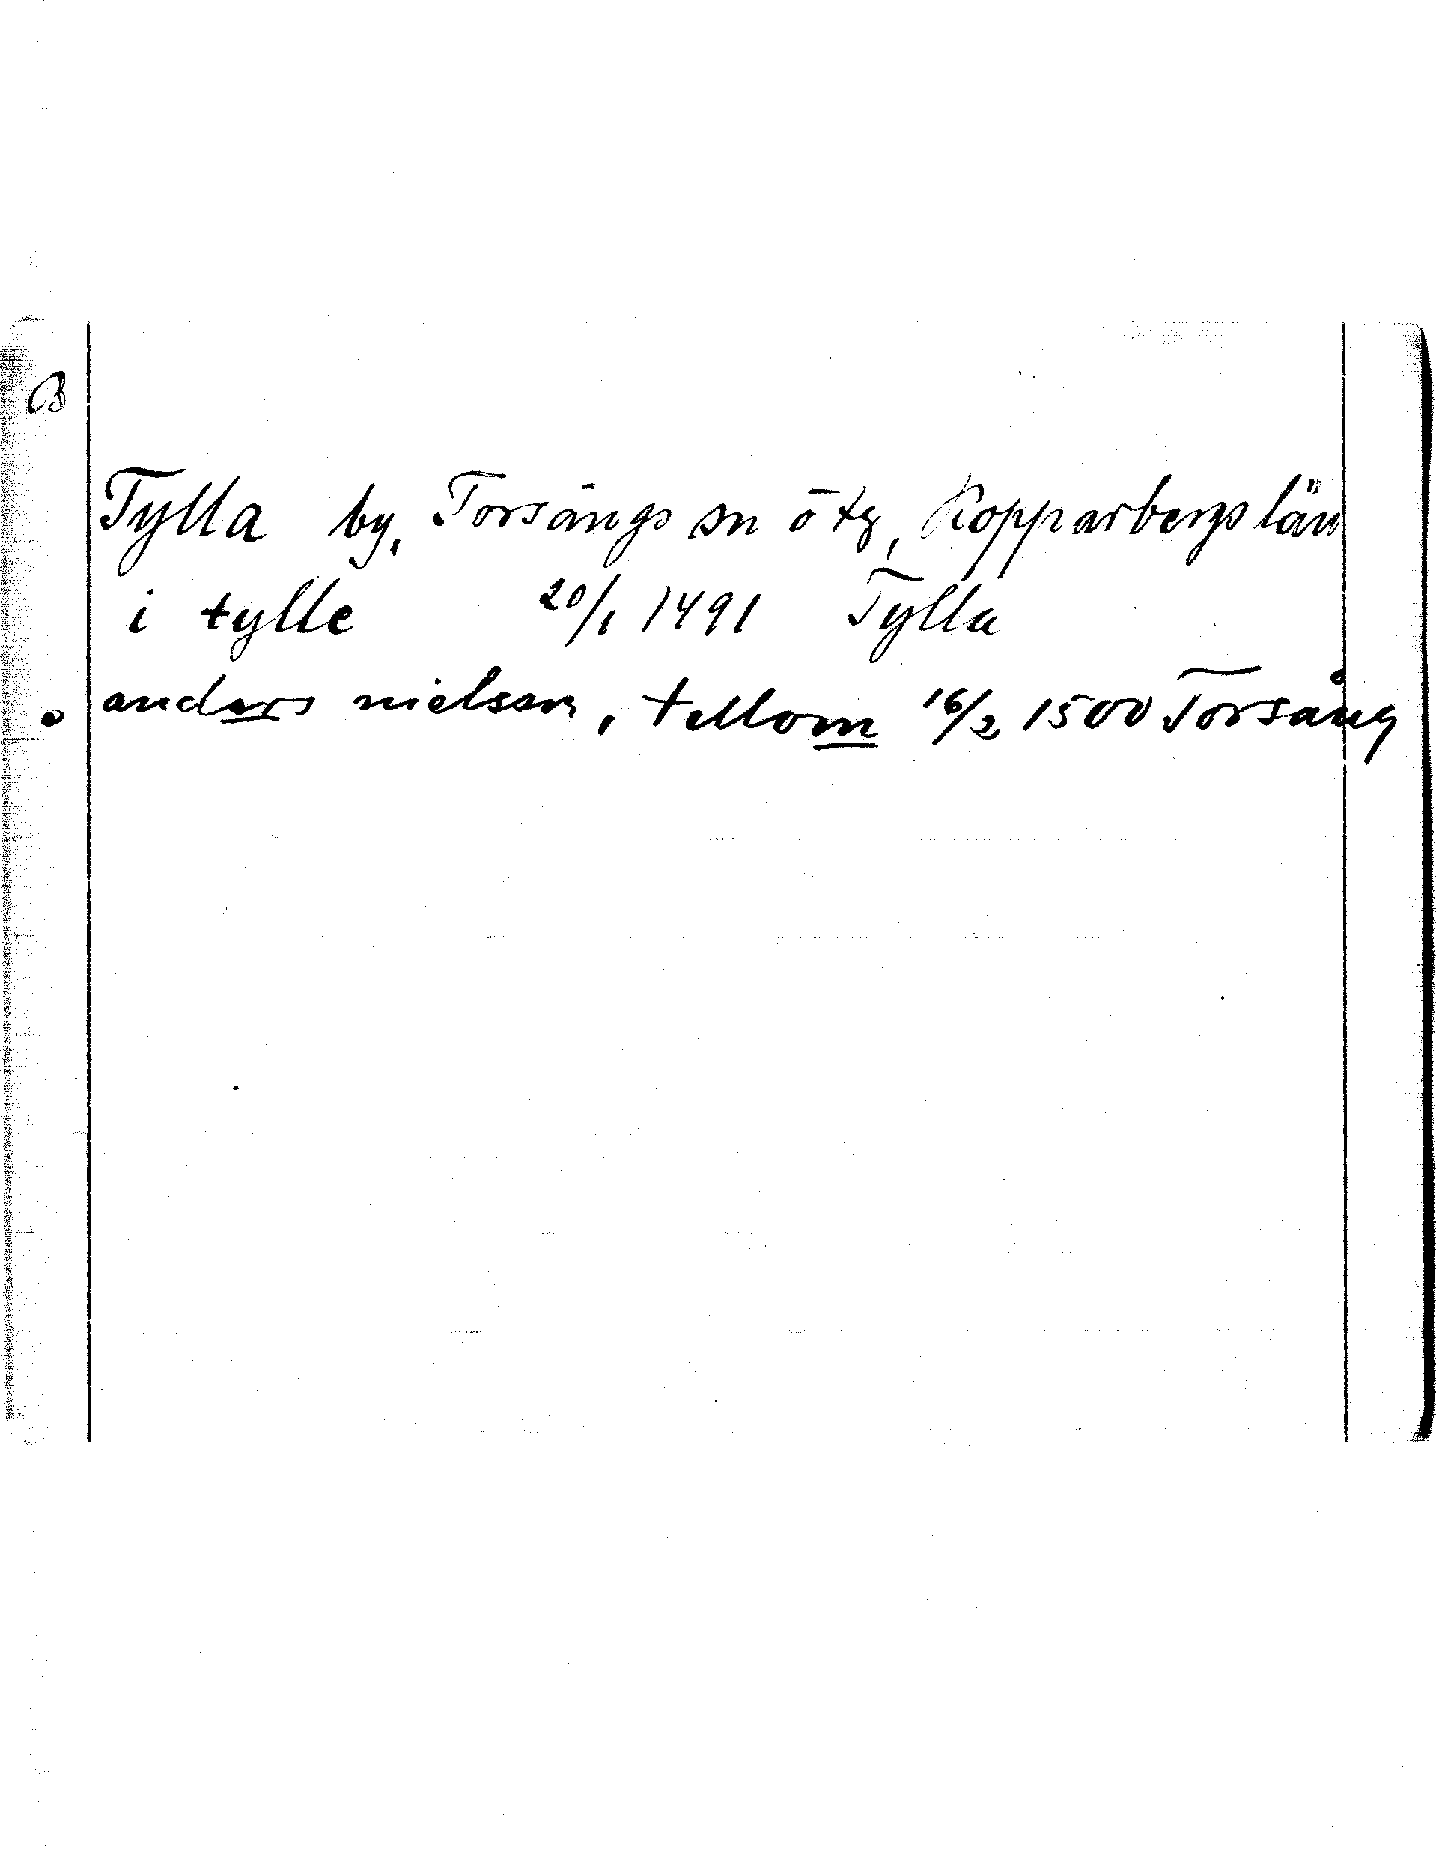 B
Tylla by, Torsångs sn ö tg, Kopparbergs län
i tylle 20/1 1491 Tylla
anders nielson, tellom 16/2 1500 Torsång